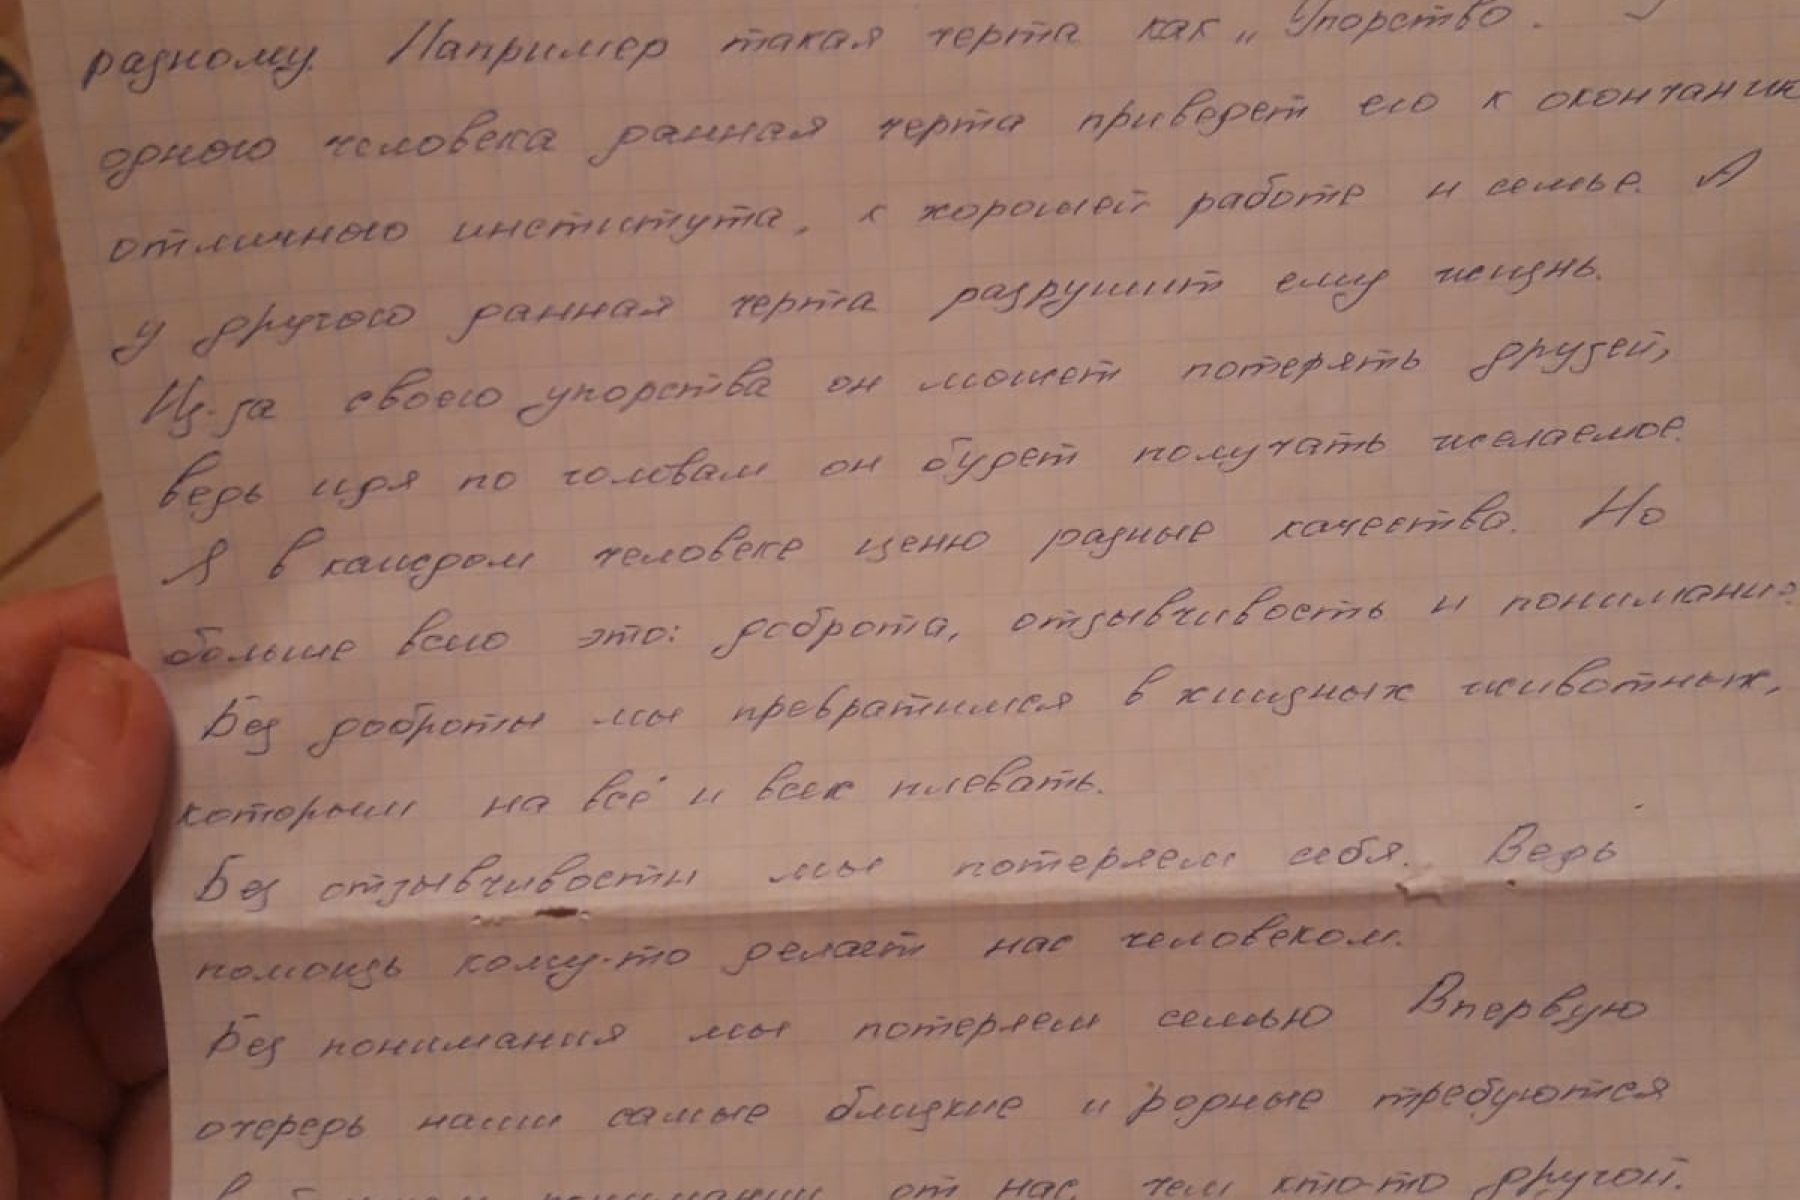 разному. Например такая черта как „Упорство.
одного человека данная черта приведет его к окончанию
отличного института, к хорошей работе и семье. А
у другого данная черта разрушит ему жизнь.
Из-за своего упорства он может потерять друзей,
ведь идя по головам он будет получать желаемое.
Я в каждом человеке ценю разные качества. Но
больше всего это: доброта, отзывчивость и понимание
Без доброты мы превратимся в хищных животных,
которым на всё и всех плевать.
Без отзывчивости мы потеряем себя. Ведь
помощь кому-то делает нас человеком.
Без понимания мы потеряем семью Впервую
очередь наши самые близкие и родные требуются
понимании от нас, чем кто-то другой.